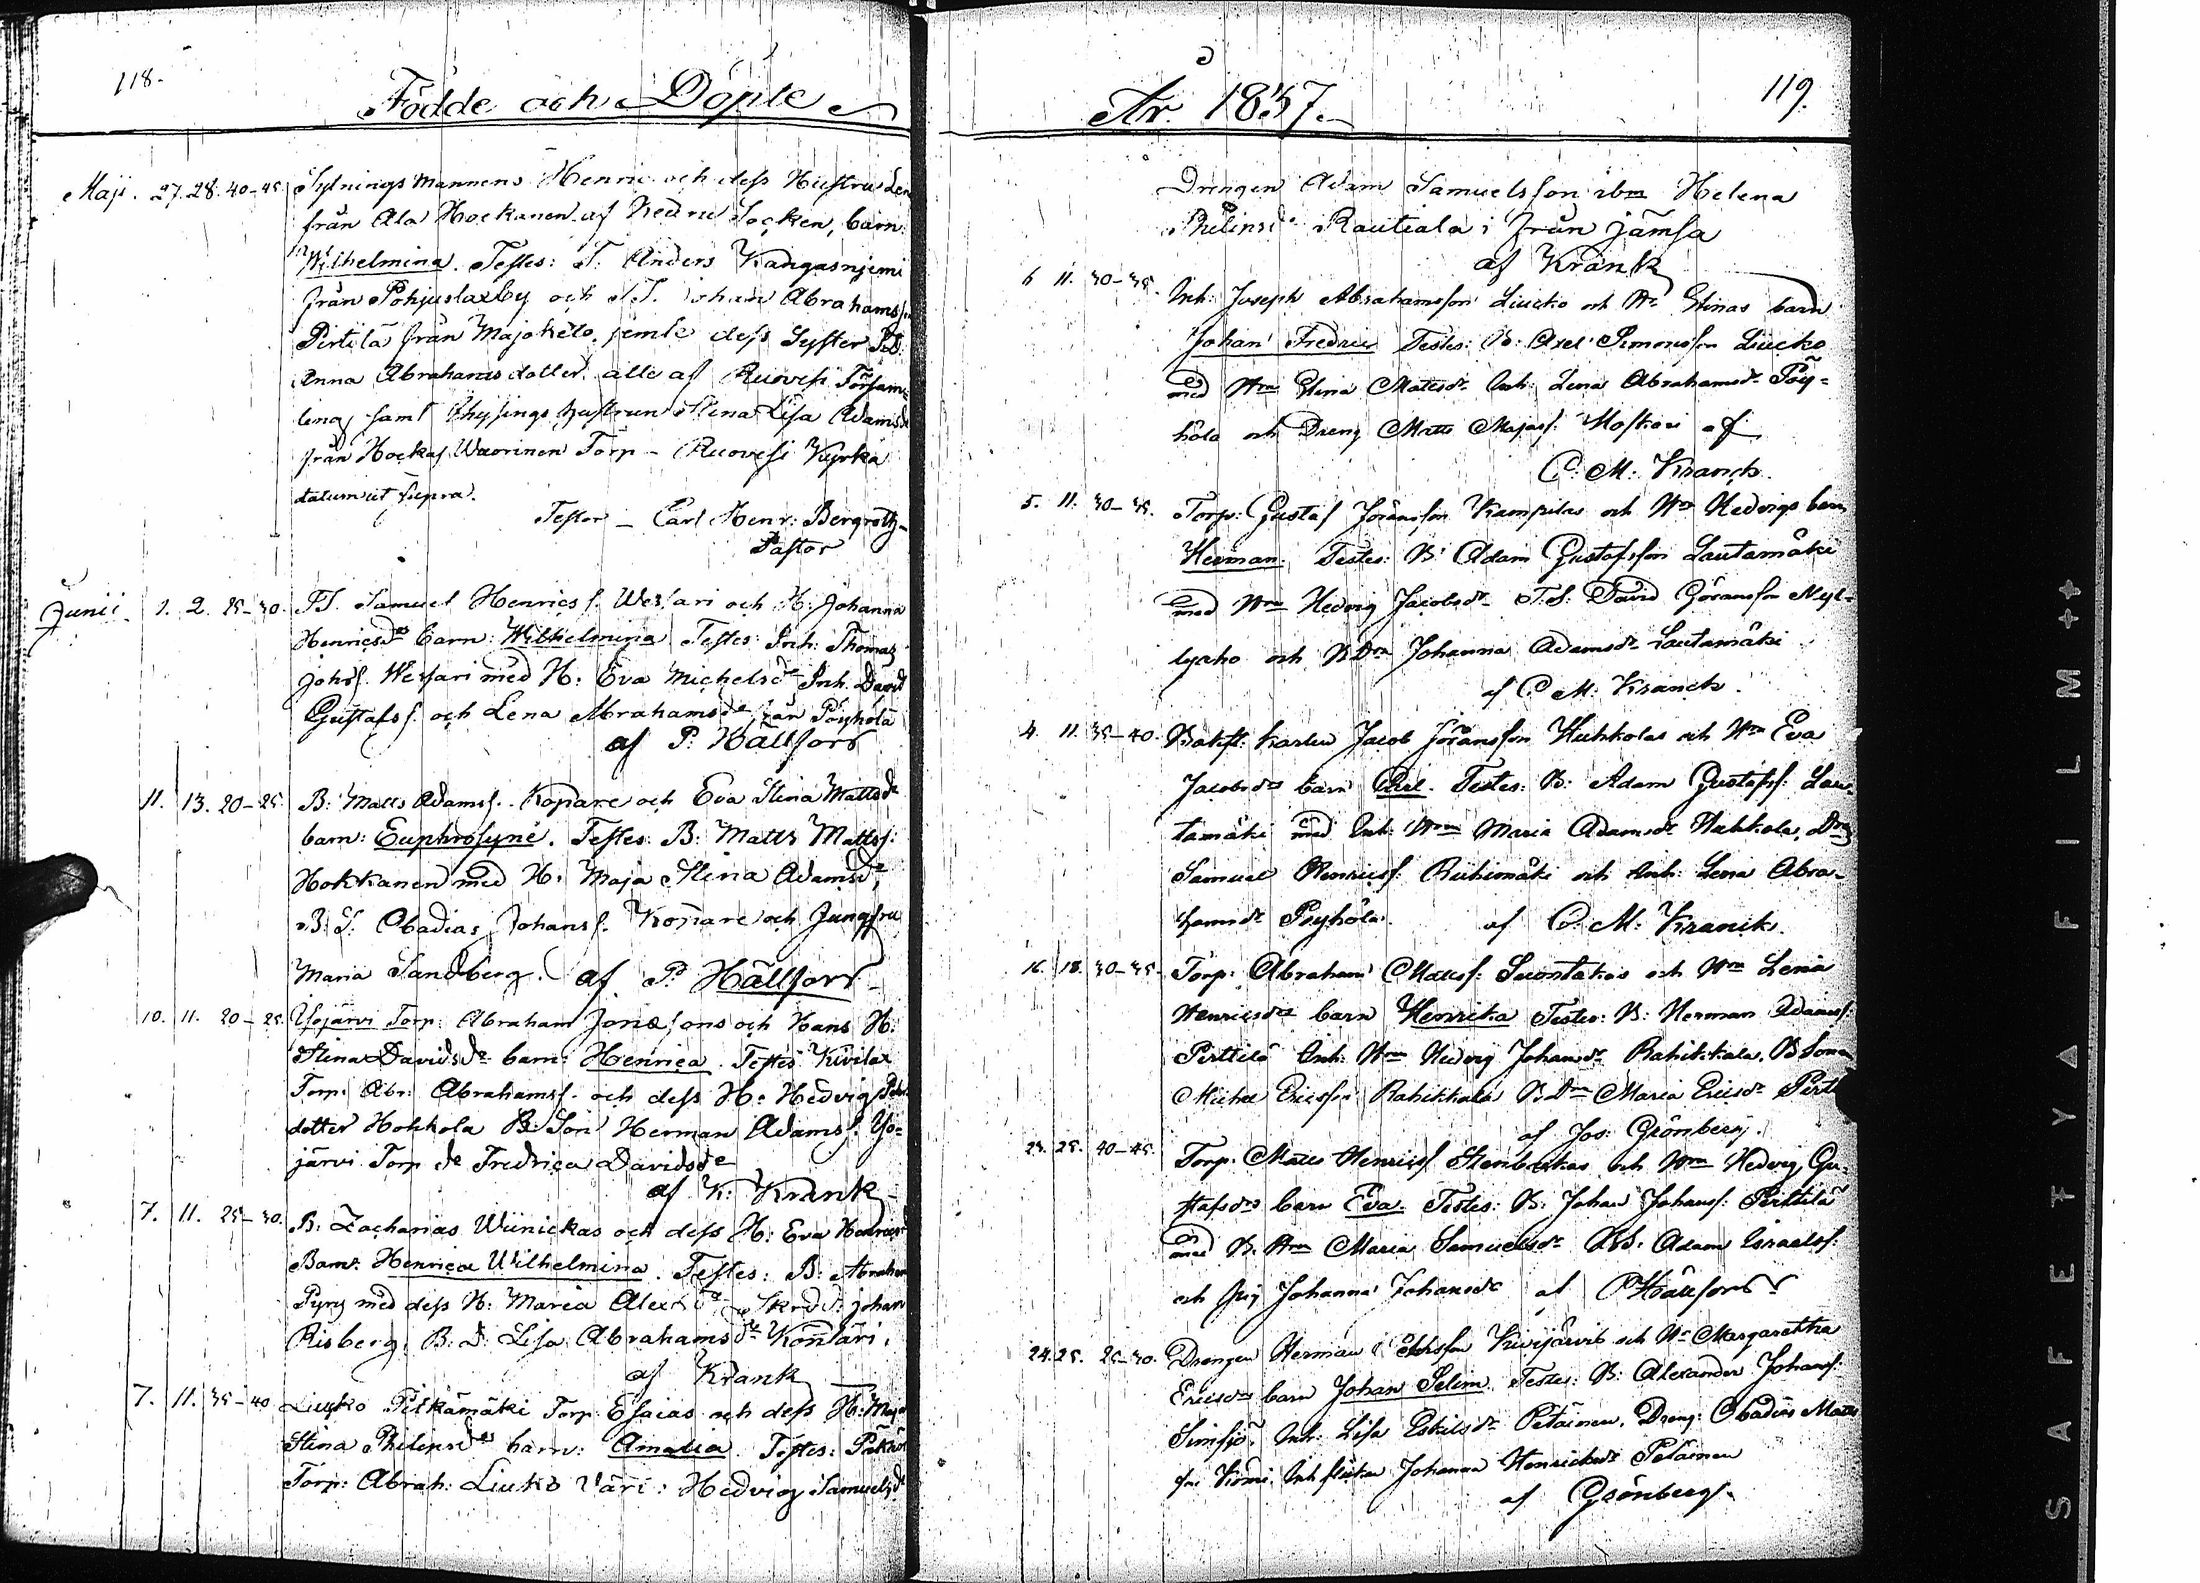 118.
Födde och Döpte
Maji. 27. 28. 40-45. Sytnings mannens Henric och dess Hustru
från Ala Hockanen af Keuru Socken, barn:
Wilhelmina. Testes: T. Anders Kangasnjemi
från Pohjuslaxby och Johan Abrahamss
Pirtilä från Majokelo. jemte dess Syster
Anna Abrahams dotter. alle af Ruovesi Försam
ling samt Stina Lisa Adamsdr
från Hockas Wuorinen Torp - Ruovesi Kyrka
datum ut supra.
Carl Henr: Bergroth
Pastor
Junii 1. 2. 25-30. Samuel Henrics s. Wessari och H. Johanna
Henricsdrs barn: Wilhelmina Testes: Inh. Thomas
Johs s. Wessari med H: Eva Michelsdr Inh. David
Gustafs s. och Lena Abrahamsdr från Pöyhölä
af P: Hällfors
11. 13. 20-25. B: Matts Adams s. Kopare och Eva Stina Mattsdr
barn: Euphrosyne. Testes: B: Matts Matts s.
Hokkanen med H: Maja Stina Adamsdr,
B: S: Obadias Johans s. Kopare och Jungfru
Maria Sandberg. af P. Hällfors
10. 11. 20-25. Torp: Abraham och Hans H:
Stina Davidsdr barn: Henrica. Testes Kivilax
Torp: Abr: Abrahams s. och dess H: Hedvig
dotter Hokkola B: Son Herman Adams s. Yö-
järvi Torp dr Fredrica Davidsdr
af K: Krank
7. 11. 25-30. B: Zacharias Wiinickas och dess H: Eva Henricsd
Barn: Henrica Wilhelmina. Testes: B: Abraham
Pyry med dess H: Maria Alex dr Johan
Risberg. B: D: Lisa Abrahamsdr Kontäri.
af Krank
7. 11. 35-40 Liucko Pitkämäki Torp: Esaias och dess H: Maja
Stina Philipsdrs barn: Amalia. Testes:
Torp: Abrah: Liuko Väri: Hedvig Samuelsdr
119.
År 1837.
Drengen Adam Samuelsson ibm Helena
Philipsdr Rautiala i från Jämsä
af Krank
6 11. 30-35. Inh: Joseph Abrahamsson Liucko och Hu Stinas barn
Johan Fredric Testes: B: Axel Simonsson Liucko
med Hru Stina Mattsdr Inh: Lena Abrahamsdr Pöy-
hölä och Dreng Matts Majass: af
C: M: Kranck.
5. 11. 30-35. Torp: Gustaf Göransson Kampilas och Hru Hedvigs barn
Herman. Testes: B: Adam Gustafsson Lautamäki
med Hru Hedvig Jacobsdr T.S: David Göransson Nyl-
lycko och B Dr Johanna Adamsdr Lautamäki
af C: M: Kranck.
4. 11. 35-40. karlen Jacob Göransson Huhkolas och Hru Eva
Jacobsdrs barn Carl. Testes: B: Adam Gustafss: Lau-
tamäki med Inh: Hru Maria Adamsdr Huhkola, Dng
Samuel Henricss: Riihimäki och Inh: Lena Abra-
hamsdr Pöyhölä. af C: M: Kranck.
16. 18. 30-35. Torp: Abraham Mattss: Suontakas och Hru Lena
Henricsdrs barn Henrika Testes: B: Herman Adamss:
Perttilä Inh: Hru Hedvig Johansdr Rahikkala, B Sonen
Michel Ericsson Rahikkala B. Drn Maria Ericsdr Pertt
af Jos: Grönberg.
23. 25. 40-45. Torp: Matts Henricss Stenbackas och Hru Hedvig Gu-
stafsdrs barn Eva. Testes: B: Johan Johanss: Perttilä
med B. Hru Maria Samuelsdr Adam Israelss:
och Pig Johanna Johansdr af Hällfors
24. 25. 25-30. Drengen Herman Kivijärvis och Hu Margaretha
Ericsdrs barn Johan Selim. Testes: B: Alexander Johanss:
Simsjö, Inh: Lisa Eskilsdr Petäinen, Dreng: Obadias Matts
son Inh flickan Johanna Henricsdr Petäinen
af Grönberg.
SAFETY A FILM